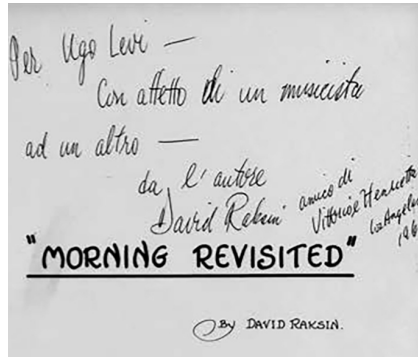 Per Ugo Levi —
Con affetto di un musicista
ad un altro —
da l'autore
David Raksin
amico di
Vittorio e Henrietta
Los Angeles
"MORNING REVISITED"
By DAVID RAKSIN.